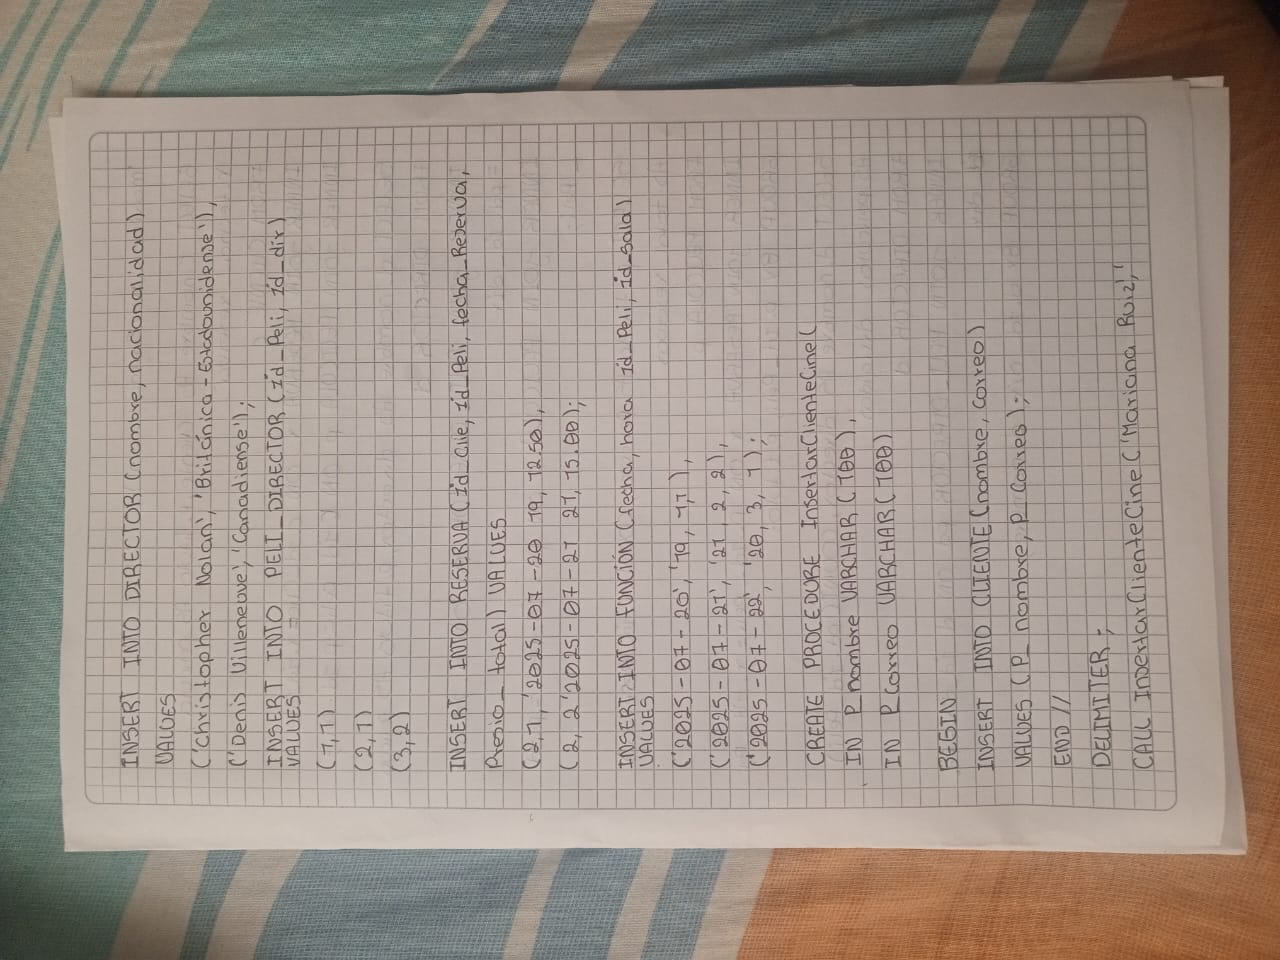 INSERT INTO DIRECTOR (nombre, nacionalidad)
VALUES
('Christopher Nolan', 'Británica - Estadounidense'),
('Denis Villeneuve', 'Canadiense');
INSERT INTO PELI_DIRECTOR (id_Peli, id_dir)
VALUES
(1,1)
(2,1)
(3,2)
INSERT INTO RESERVA (Id_Clie, id_Peli, fecha_Reserva,
Presio_total) VALUES
(2,1, '2025-07-20 19, 12.50),
(2, 2 '2025-07-21 21, 15.00);
INSERT INTO FUNCIÓN (fecha, hora id_Peli, id_sala)
VALUES
('2025-07-20', '19, 1,1),
('2025-07-21', '21, 2, 2),
('2025-07-22', '20, 3, 1);
CREATE PROCEDURE InsertarClienteCine(
IN P_nombre VARCHAR (100),
IN P_Correo VARCHAR (100)
BEGIN
INSERT INTO CLIENTE (nombre, Correo)
VALUES (P_nombre, P_Correo);
END //
DELIMITER ;
CALL InsertarClienteCine ('Mariana Ruiz', '